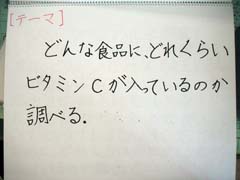 [テーマ]
どんな食品に、どれくらい
ビタミンCが入っているのか
調べる.